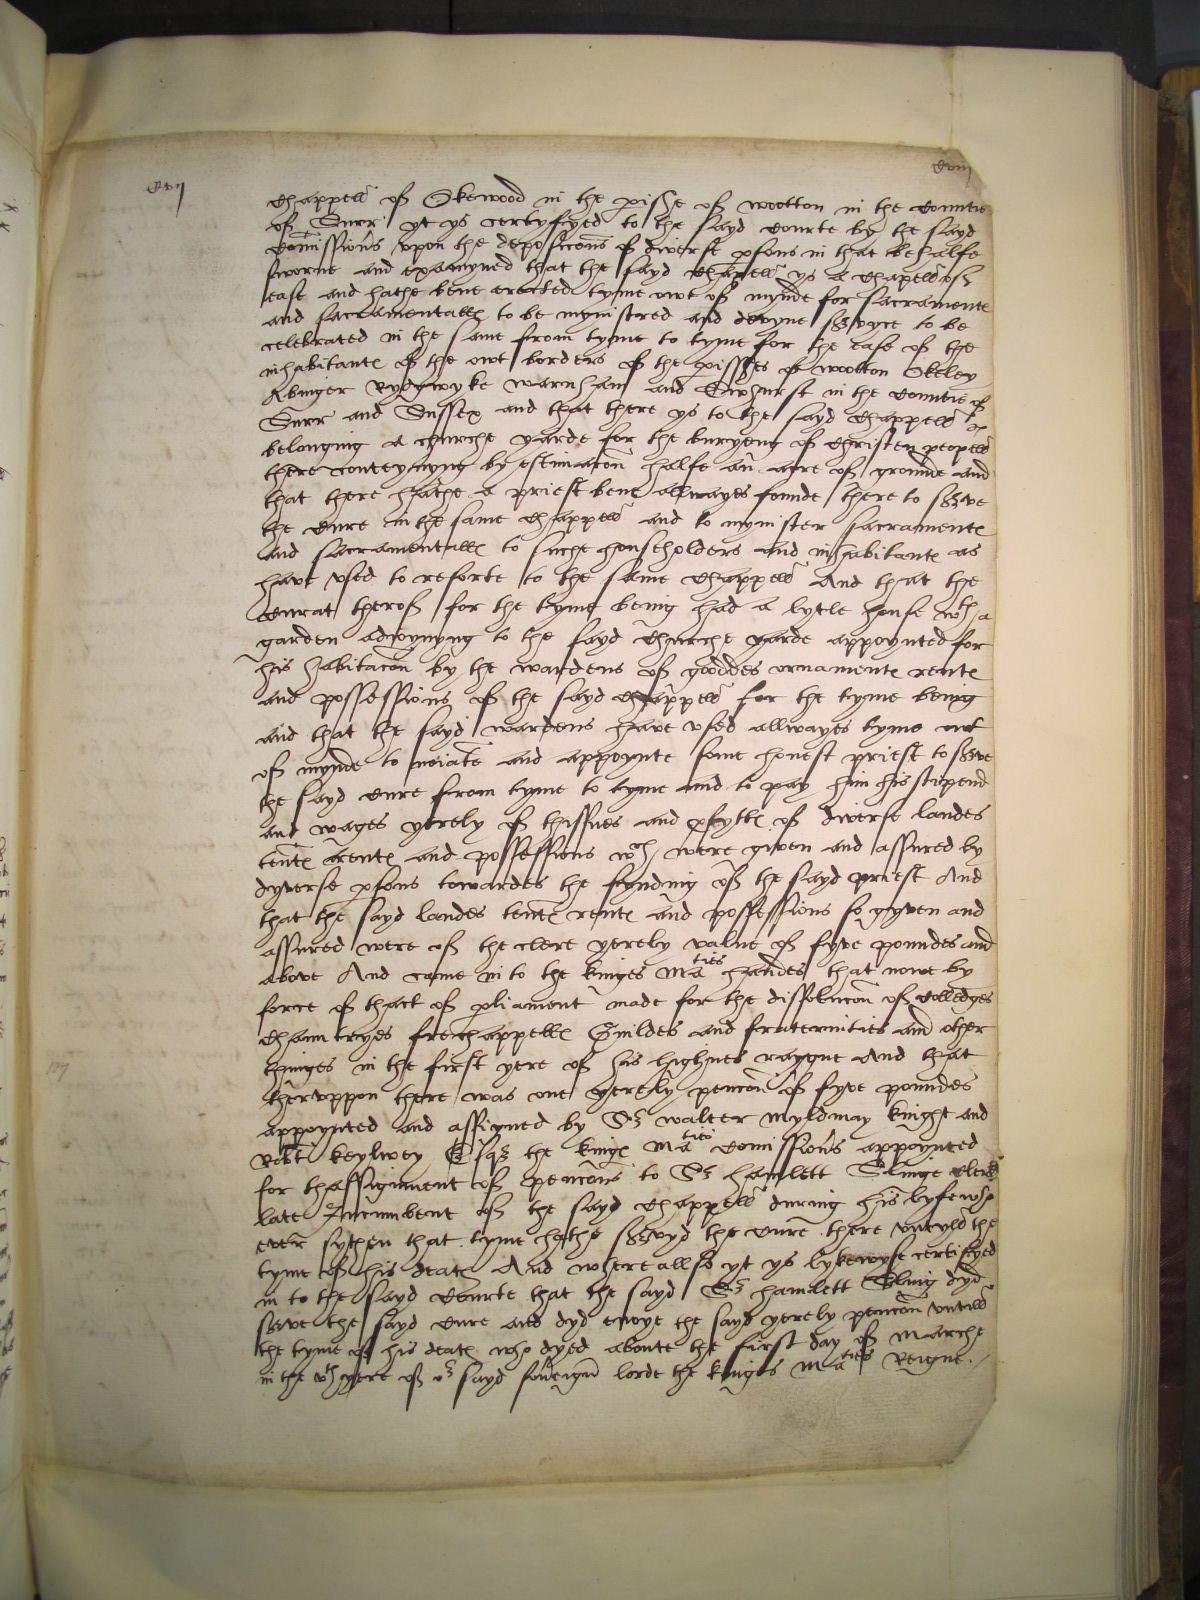 Cvij
Cviij
Chappell of Okewood in the pishe of Wootton in the Countie
of Surr yt ys certyfyed to the sayd Courte by the sayd
Comissions vpon the deposicons of diverse psons in that behalfe
sworne and examyned that the sayd Chapell ys a Chapell of
ease and hathe bene erected tyme owt of mynde for Sacramente
and Sacramentalles to be mynistred and devyne svyce to be
celebrated in the same from tyme to tyme for the ease of the
inhabitante of the owt borders of the pisshes of Wootton Okeley
Abinger Rydgwyke Warnham and Ewhurst in the Countie of
Surr and Sussex and that there ys to the sayd Chappell
belonging a churche yarde for the buryeng of Christen people
there conteynyng by estimacon halfe an acre of grounde and
that there hathe a priest bene allwayes founde there to sve
the Cure in the same Chappell and to mynister Sacramente
and Sacramentalles to suche householders and inhabitante as
have vsed to resorte to the same Chappell And that the
Curat therof for the tyme being had a lytle house wth a
garden adioynyng to the sayd Churche yarde appoynted for
his habitacon by the wardens of gooddes ornamente rente
and possessions of the sayd Chappell for the tyme being
and that the sayd wardens have vsed allwayes tyme owt
of mynde to noiate and appoynte some honest priest to sve
the sayd Cure from tyme to tyme and to pay him his stipend
and wages yerely of thissues and pfytte of diverse landes
tente rente and possessions wch were given and assured by
dyverse psons towardes the fynding of the sayd priest And
that the sayd landes tente rente and possessions so gyven and
assured were of the clere yerely value of fyve poundes and
above And came in to the kinges Maties handes that nowe by
force of thact of pliament made for the dissolucon of Colledges
Chauntryes fre chappelles Guildes and fraternities and other
thinges in the first yere of his highnes raygne And that
thervppon there was one yerely pencon of fyve poundes
appoynted and assigned by Sr Walter Myldmay knight and
Robt Keylwey Esqr the kinge Maties Comissions appoynted
for thassignment of pencons to Sr Hamlett Slinge clerk
late Incumbent of the sayd Chappell during his lyfe who
ever sythen that tyme hathe svyd the Cure there vntyll the
tyme of his death And where allso yt ys lykewyse certifyed
in to the sayd Courte that the sayd Sr Hamlett Sling dyd
sve the sayd Cure and dyd enioye the sayd yerely pencon vntill
the tyme of his death who dyed aboute the first day of Marche
in the vth yere of or sayd soveign lorde the kinges Maties Reigne./